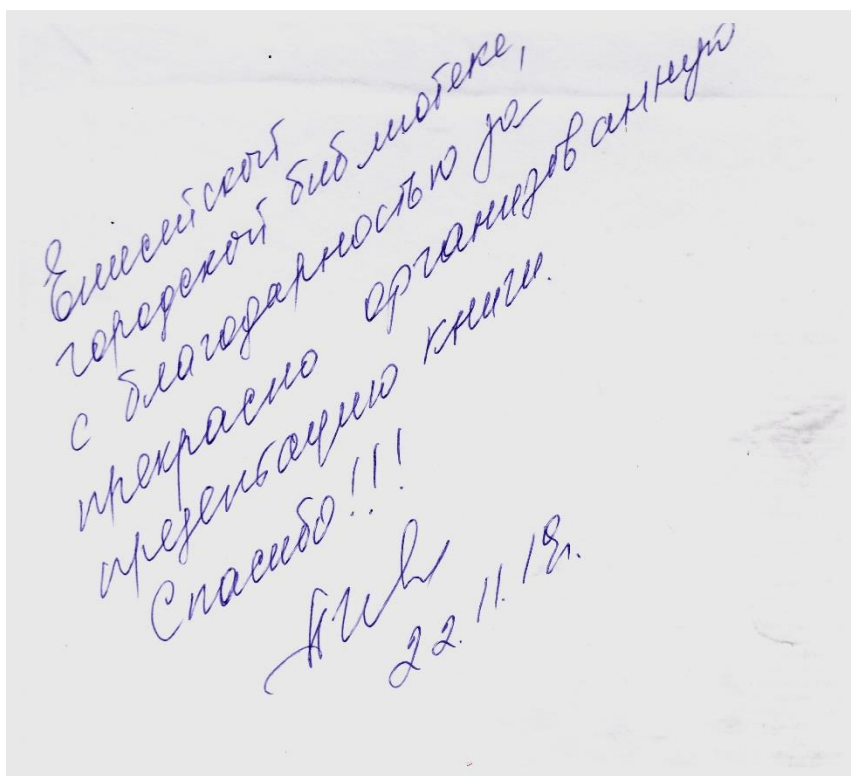 Енисейской
городской библиотеке,
с благодарностью за
прекрасно организованную
презентацию книги.
Спасибо!!!
22.11.19г.